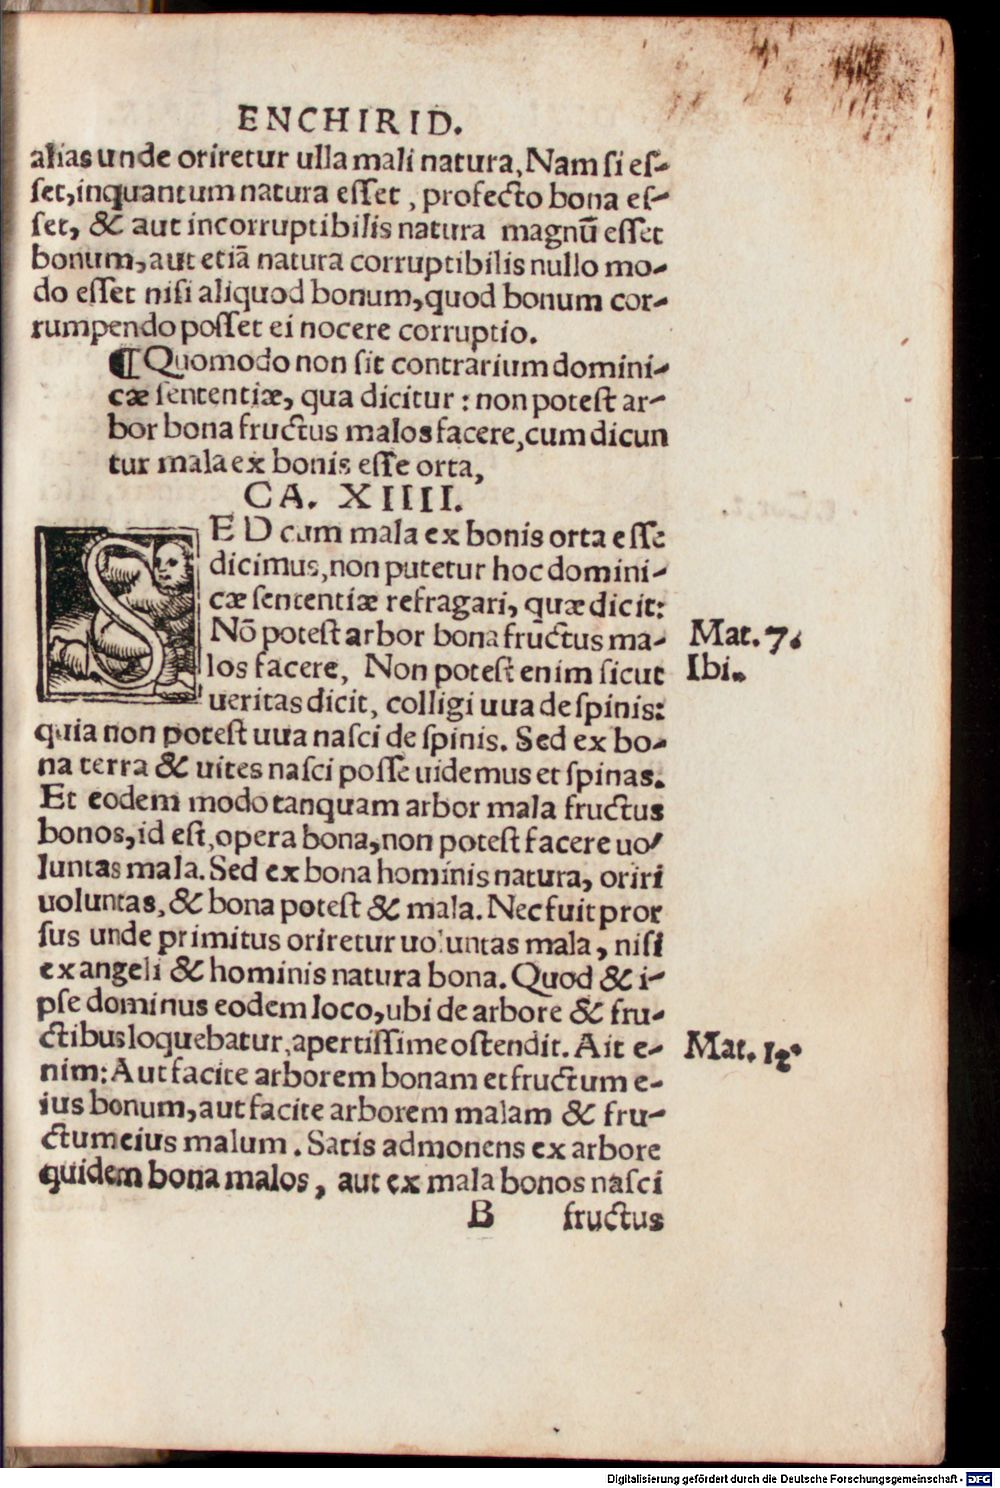 ENCHIRID.
alias unde oriretur ulla mali natura, Nam si es-
set, inquantum natura esset, profecto bona es-
set, & aut incorruptibilis natura magnū esset
bonum, aut etiā natura corruptibilis nullo mo-
do esset nisi aliquod bonum, quod bonum cor-
rumpendo posset ei nocere corruptio.
¶ Quomodo non sit contrarium domini-
cæ sententiæ, qua dicitur: non potest ar-
bor bona fructus malos facere, cum dicun
tur mala ex bonis esse orta,
CA. XIIII.
SED cum mala ex bonis orta esse
dicimus, non putetur hoc domini-
cæ sententiæ refragari, quæ dicit:
Nō potest arbor bona fructus ma-
Mat. 7.
los facere, Non potest enim sicut
Ibi.
ueritas dicit, colligi uua de spinis:
quia non potest uua nasci de spinis. Sed ex bo-
na terra & uites nasci posse uidemus et spinas.
Et eodem modo tanquam arbor mala fructus
bonos, id est, opera bona, non potest facere uo/
luntas mala. Sed ex bona hominis natura, oriri
uoluntas, & bona potest & mala. Nec fuit pror
sus unde primitus oriretur uoluntas mala, nisi
ex angeli & hominis natura bona. Quod & i-
pse dominus eodem loco, ubi de arbore & fru-
ctibus loquebatur, apertissime ostendit. Ait e-
Mat. 12.
nim: Aut facite arborem bonam et fructum e-
ius bonum, aut facite arborem malam & fru-
ctum eius malum. Satis admonens ex arbore
quidem bona malos, aut ex mala bonos nasci
B fructus
Digitalisierung gefördert durch die Deutsche Forschungsgemeinschaft - DFG